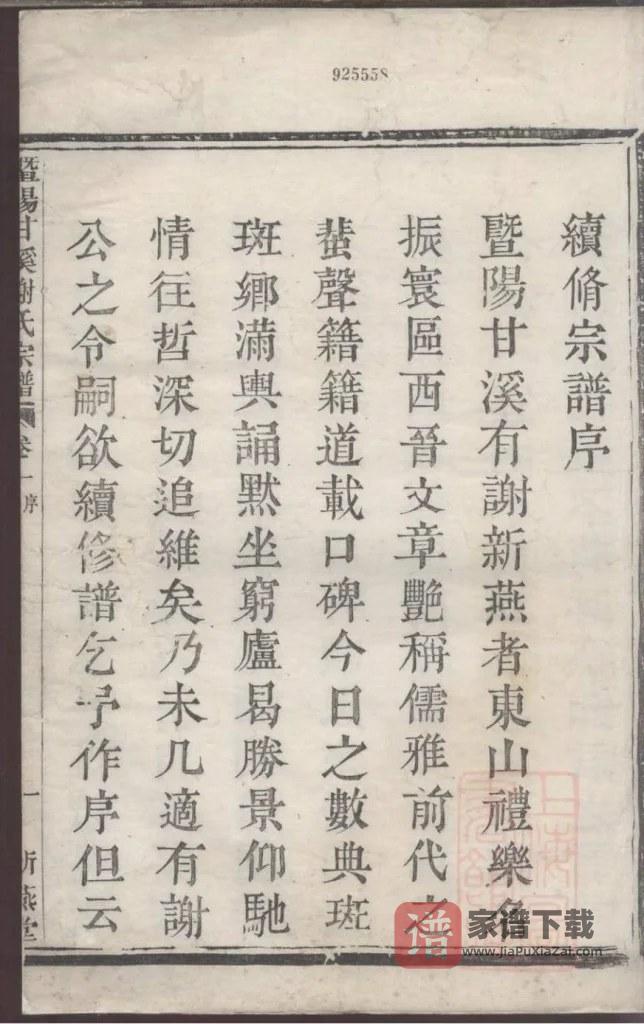 925558
續脩宗譜序
暨陽甘溪有謝新燕者東山禮樂名
振寰區西晉文章艷稱儒雅前代之
蜚聲籍籍道載口碑今日之數典斑
斑鄉滿輿誦默坐窮廬曷勝景仰馳
情往哲深切追維矣乃未几適有謝
公之令嗣欲續修譜乞予作序但云
暨陽甘溪謝氏宗譜 卷一 序 一 新燕堂
谱 家谱下载
www.jiaPuXiaZai.com